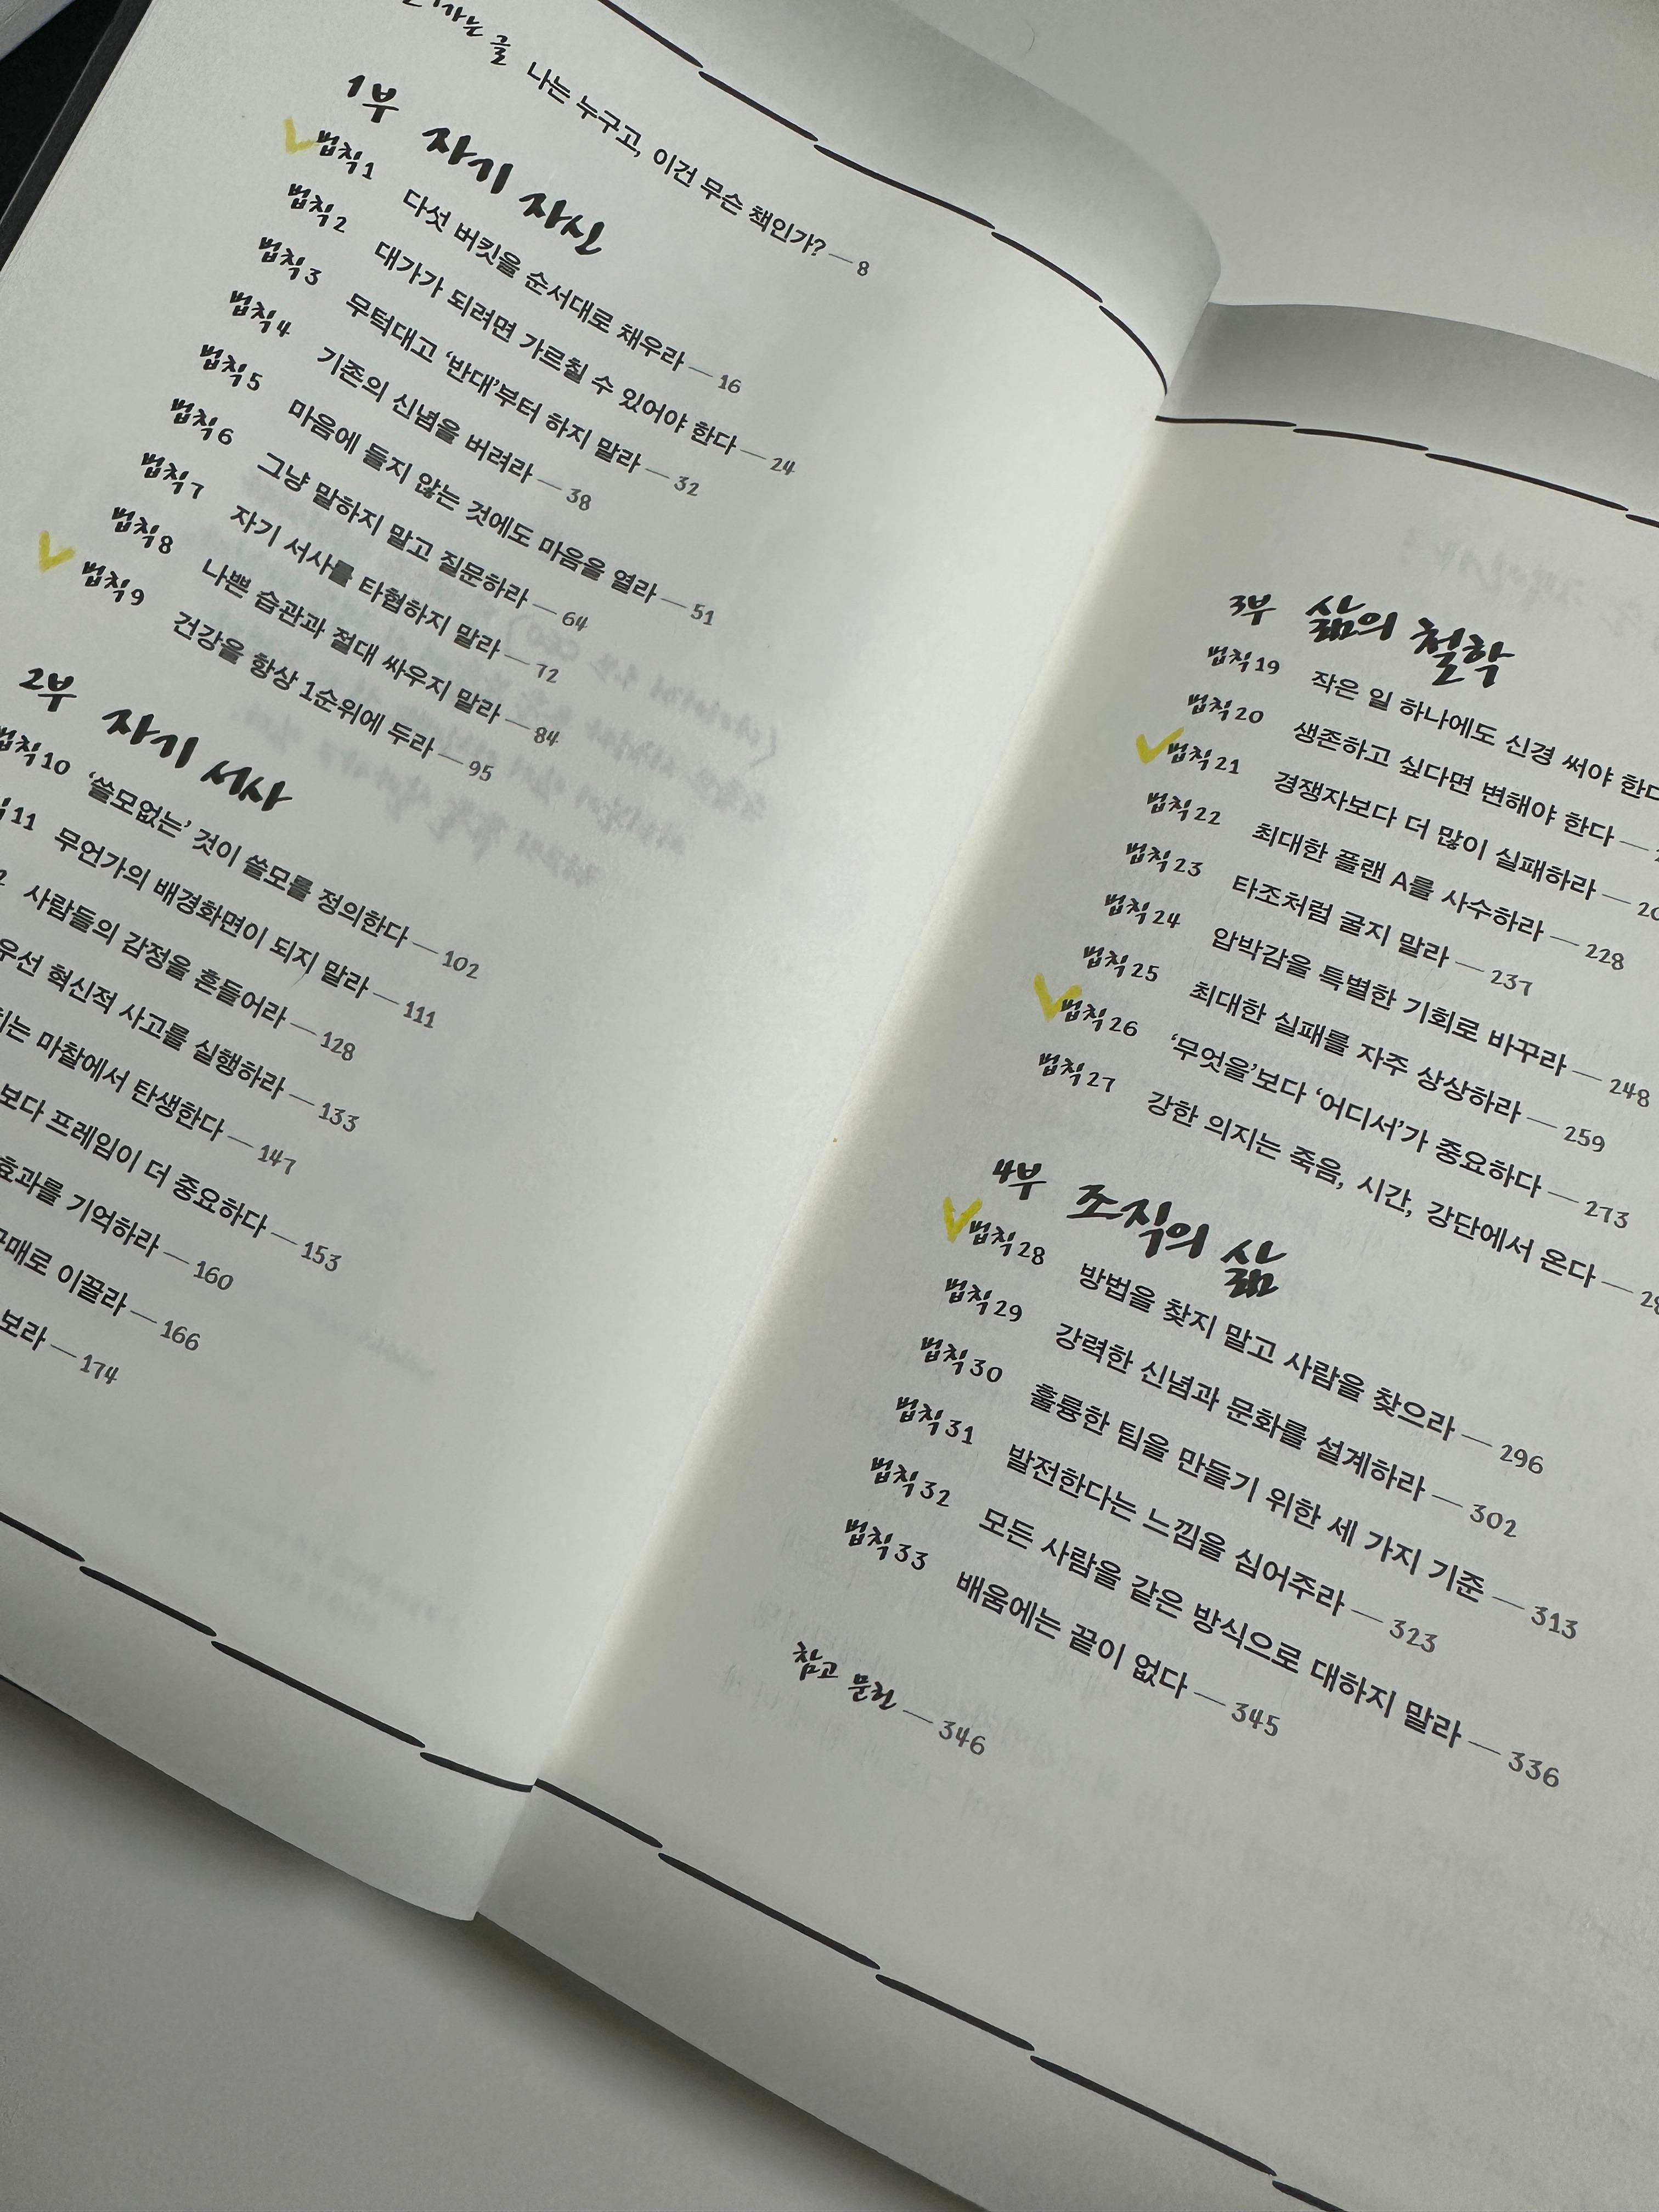 글 나는 누구고, 이건 무슨 책인가? — 8
1부 자기 자신
법칙1 다섯 버킷을 순서대로 채우라 — 16
법칙2 대가가 되려면 가르칠 수 있어야 한다 — 24
법칙3 무턱대고 ‘반대’부터 하지 말라 — 32
법칙4 기존의 신념을 버려라 — 38
법칙5 마음에 들지 않는 것에도 마음을 열라 — 51
법칙6 그냥 말하지 말고 질문하라 — 64
법칙7 자기 서사를 타협하지 말라 — 72
법칙8 나쁜 습관과 절대 싸우지 말라 — 84
법칙9 건강을 항상 1순위에 두라 — 95
2부 자기 서사
법칙10 ‘쓸모없는’ 것이 쓸모를 정의한다 — 102
11 무언가의 배경화면이 되지 말라 — 111
2 사람들의 감정을 흔들어라 — 128
우선 혁신적 사고를 실행하라 — 133
는 마찰에서 탄생한다 — 147
보다 프레임이 더 중요하다 — 153
효과를 기억하라 — 160
구매로 이끌라 — 166
보라 — 174
3부 삶의 철학
법칙19 작은 일 하나에도 신경 써야 한다
법칙20 생존하고 싶다면 변해야 한다 —
법칙21 경쟁자보다 더 많이 실패하라 — 20
법칙22 최대한 플랜 A를 사수하라 — 228
법칙23 타조처럼 굴지 말라 — 237
법칙24 압박감을 특별한 기회로 바꾸라 — 248
법칙25 최대한 실패를 자주 상상하라 — 259
법칙26 ‘무엇을’보다 ‘어디서’가 중요하다 — 273
법칙27 강한 의지는 죽음, 시간, 강단에서 온다 — 28
4부 조직의 삶
법칙28 방법을 찾지 말고 사람을 찾으라 — 296
법칙29 강력한 신념과 문화를 설계하라 — 302
법칙30 훌륭한 팀을 만들기 위한 세 가지 기준 — 313
법칙31 발전한다는 느낌을 심어주라 — 323
법칙32 모든 사람을 같은 방식으로 대하지 말라 — 336
법칙33 배움에는 끝이 없다 — 345
참고 문헌 — 346